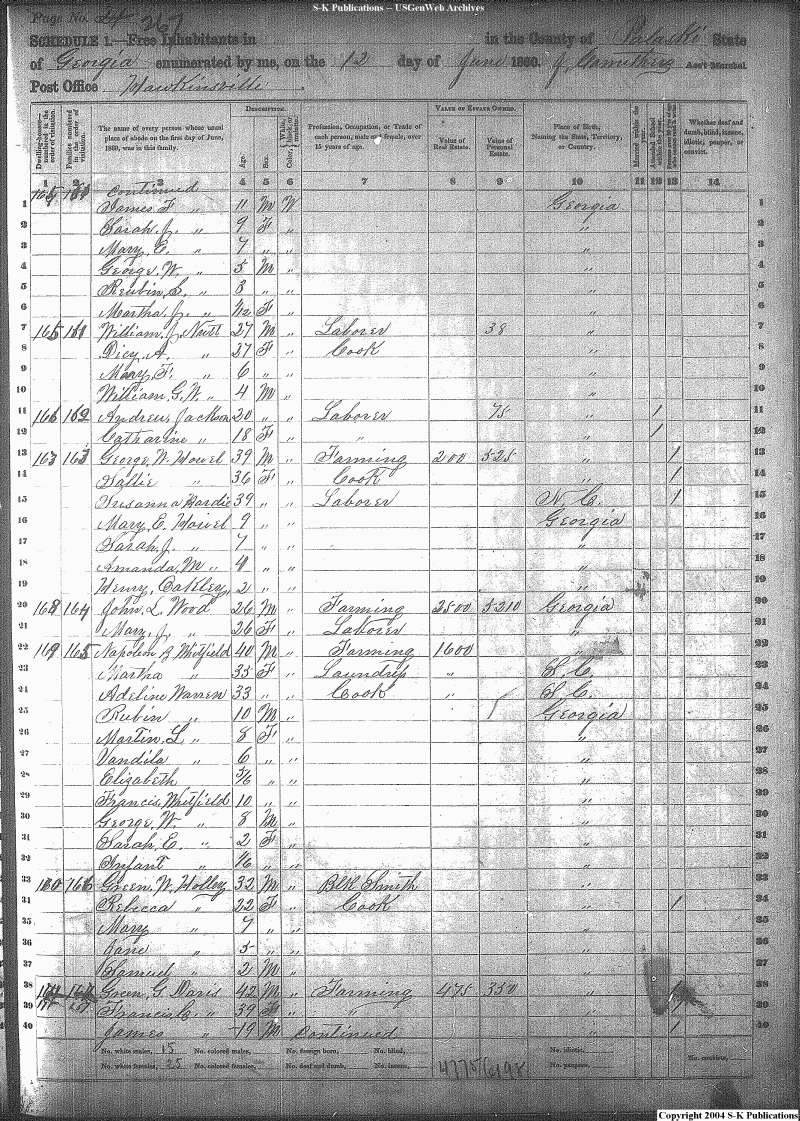 S-K Publications – USGenWeb Archives
Page No. 267
SCHEDULE 1.—Free Inhabitants in in the County of Pulaski State
of Georgia enumerated by me, on the 12 day of June 1860. J. Carruthers Ass't Marshal
Post Office Hawkinsville
Dwelling-houses—numbered in the order of visitation.
Families numbered in the order of visitation.
The name of every person whose usual place of abode on the first day of June, 1860, was in this family.
DESCRIPTION.
Age.
Sex.
Color, White, black, or mulatto.
Profession, Occupation, or Trade of each person, male and female, over 15 years of age.
VALUE OF ESTATE OWNED.
Value of Real Estate.
Value of Personal Estate.
Place of Birth, Naming the State, Territory, or Country.
Married within the year.
Attended School within the year.
Whether deaf and dumb, blind, insane, idiotic, pauper, or convict.
1 2 3 4 5 6 7 8 9 10 11 12 13 14
continued
1 James F " 11 M W Georgia 1
2 Sarah J. " 9 F " " 2
3 Mary E. " 7 " " " 3
4 George W. " 5 M " " 4
5 Reubin L. " 3 " " " 5
6 Martha J. " F " " 6
7 165 161 William J. Nutt 27 M " Laborer 38 " 7
8 Dicy A. " 27 F " Cook " 8
9 Mary F. " 6 " " " 9
10 William G. W. " 4 M " " 10
11 166 162 Andrew Jackson 20 " " Laborer 75 " 1 11
12 Catharine " 18 F " " " 1 12
13 163 George W. Howel 39 M " Farming 200 525 " 1 13
14 Sallie " 36 F " Cook " 1 14
15 Susanna Hardie 39 " " Laborer N. C. 1 15
16 Mary E. Howel 9 " " Georgia 16
17 Sarah J. " 7 " " " 17
18 Amanda M " 4 " " " 18
19 Henry Oakley " 2 " " " 19
20 168 164 John L. Wood 26 M " Farming 2500 5210 Georgia 20
21 Mary J. " 26 F " Laborer " 21
22 169 165 Napoleon B Whitfield 40 M " Farming 1600 " 22
23 Martha " 35 F " Laundress " S. C. 23
24 Adeline Warren 33 " " Cook " S. C. 24
25 Rubin " 10 M " Georgia 25
26 Martin L " 8 F " " 26
27 Vandila " 6 " " " 27
28 Elizabeth " " " 28
29 Francis Whitfield 10 " " " 29
30 George W. " 8 M " " 30
31 Sarah E. " 2 F " " 31
32 Infant " " " " 32
33 166 Green W. Holley 32 M " Blk Smith " 33
34 Rebecca " 22 F " Cook " 1 34
35 Mary " 7 " " " 35
36 Jane " 5 " " " 36
37 Samuel " 2 M " " 37
38 Green G. Davis 42 M " Farming 475 350 " 38
39 Francis C. " 39 F " " " 1 39
40 James " 19 M Continued " 1 40
No. white males, 15 No. colored males, No. foreign born, No. blind, No. idiotic,
No. white females, 25 No. colored females, No. deaf and dumb, No. insane, 4775 6198 No. paupers, No. convicts,
Copyright 2004 S-K Publications